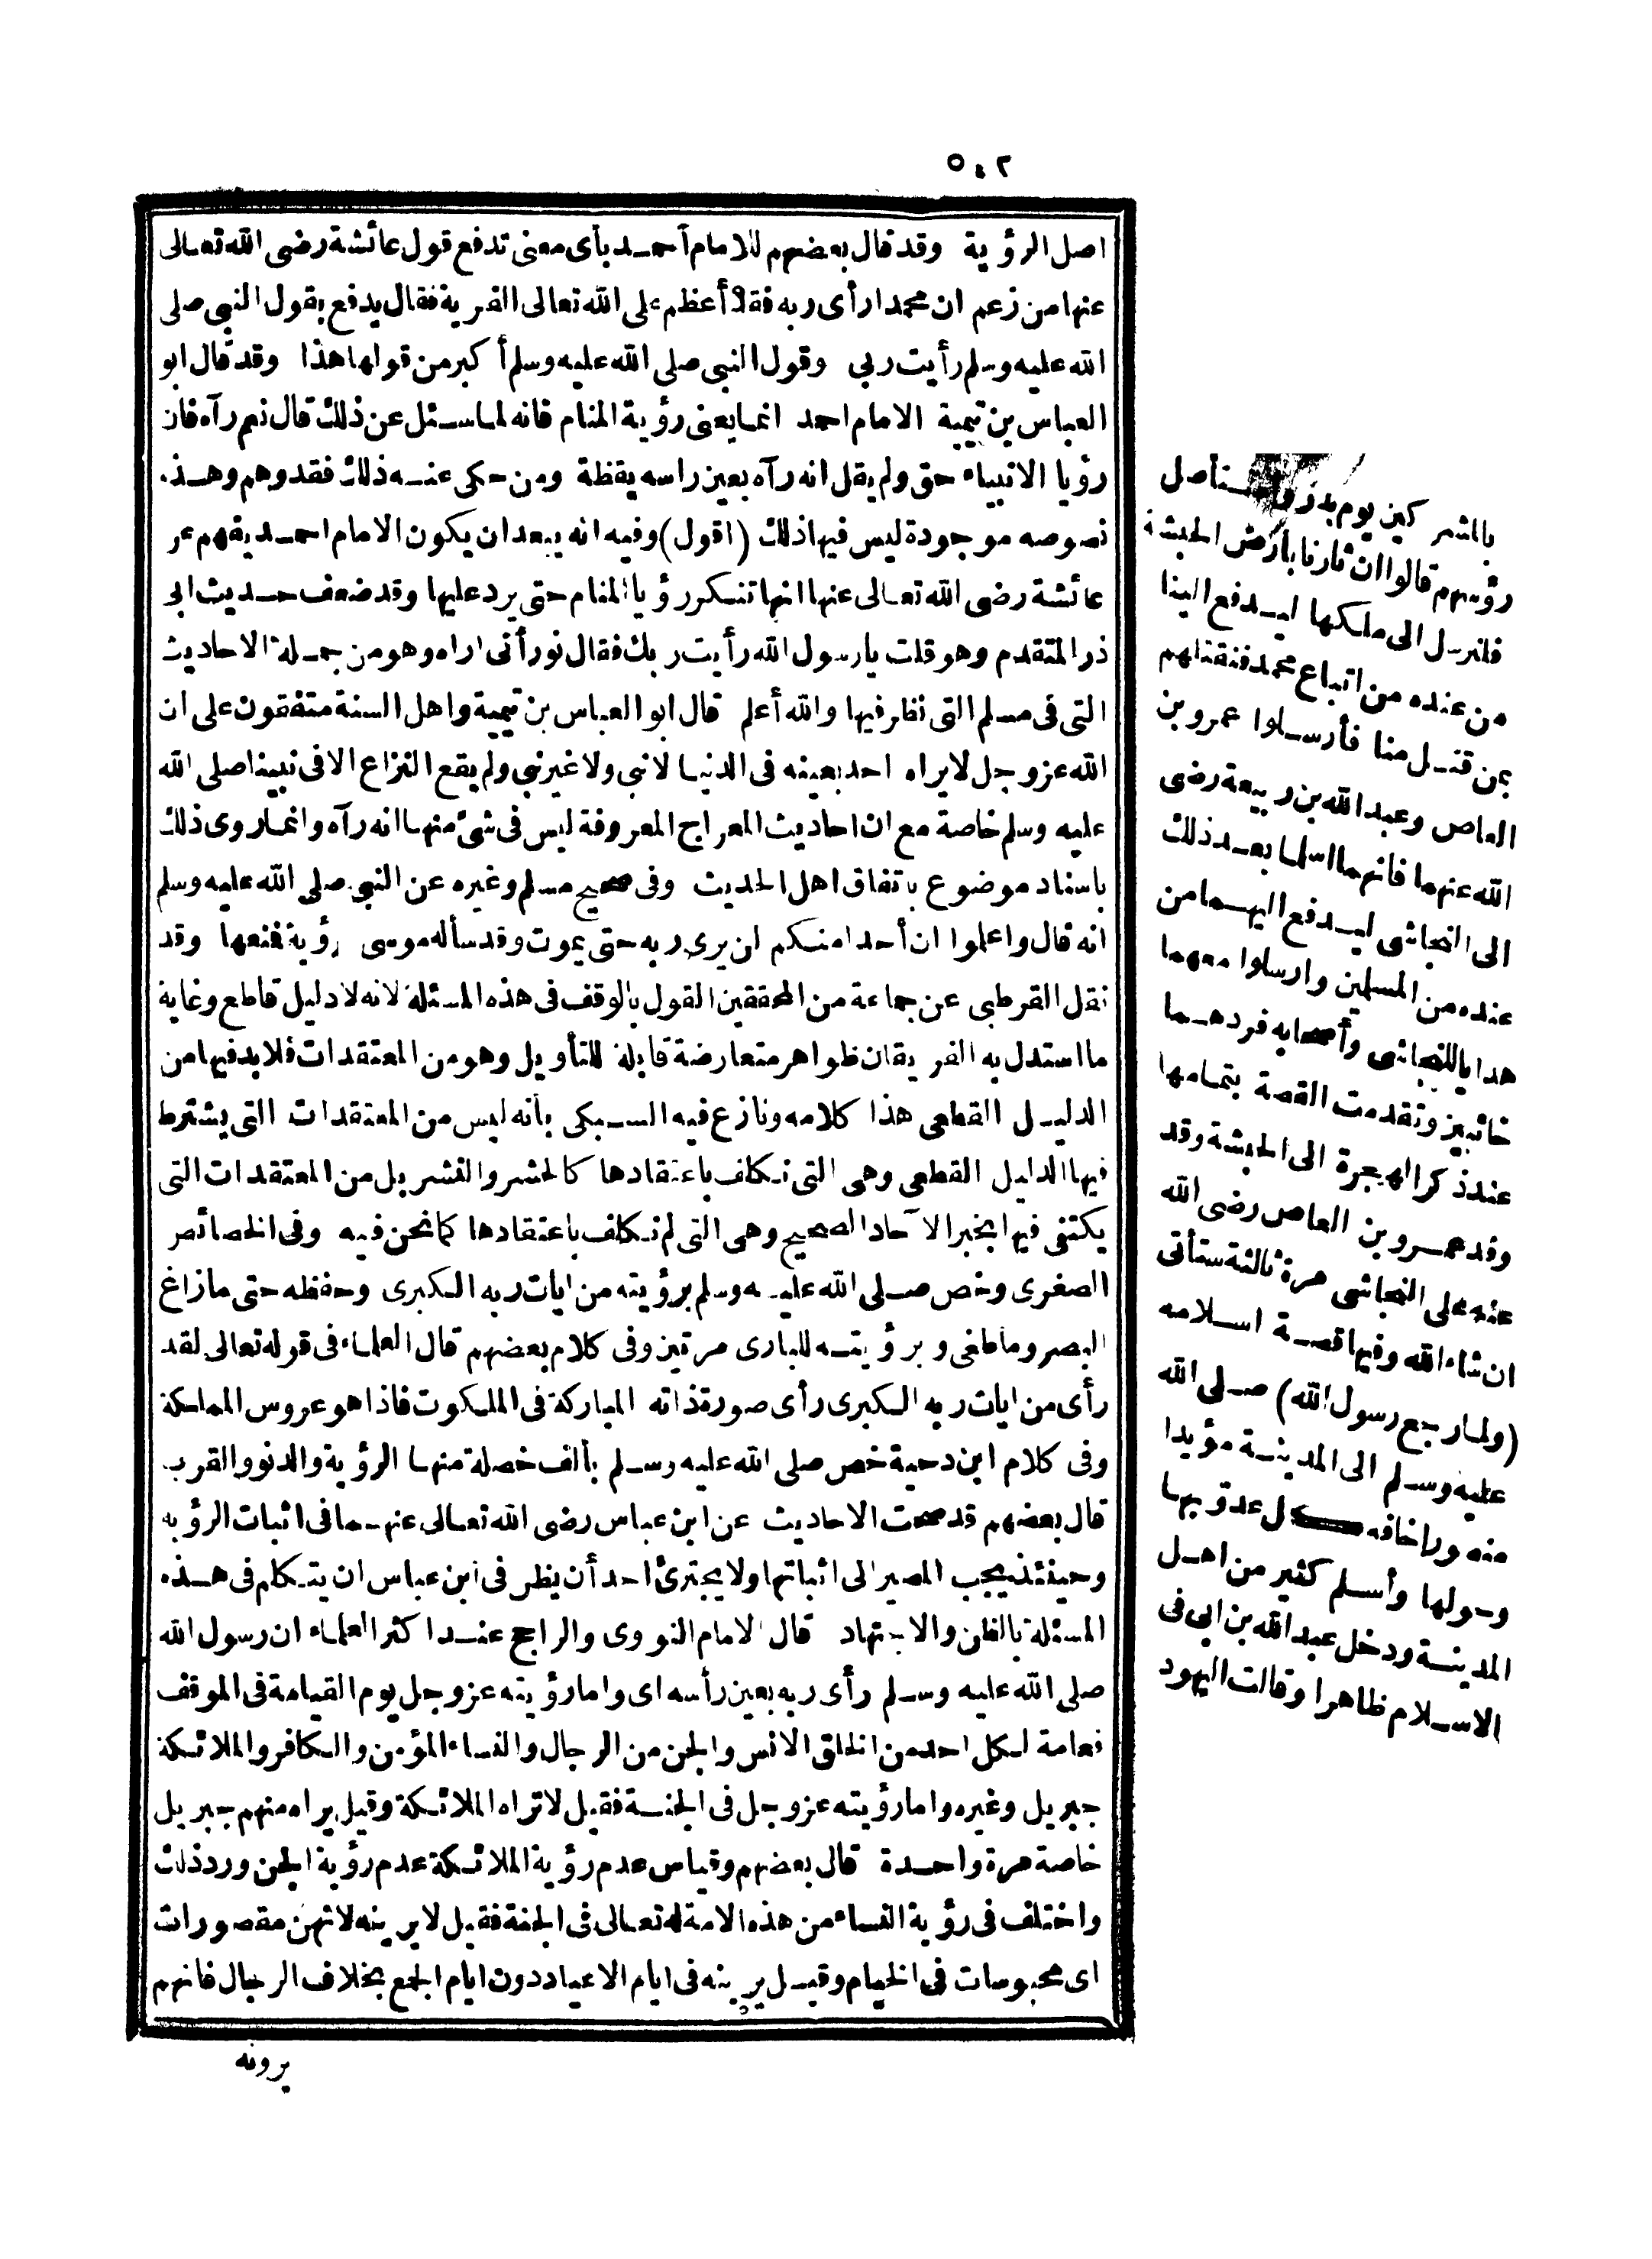 ٥٠٢
اصل الرؤية وقد قال بعضهم للامام أحمد بأى معنى تدفع قول عائشة رضى الله تعالى
عنها من زعم ان محمدا رأى ربه فقد أعظم على الله تعالى الفرية فقال يدفع بقول النبى صلى
الله عليه وسلم رأيت ربى وقول النبى صلى الله عليه وسلم أكبر من قولها هذا وقد قال ابو
العباس بن تيمية الامام احمد انما يعنى رؤية المنام فانه لما سئل عن ذلك قال نعم رآه فان
رؤيا الانبياء حق ولم يقل انه رآه بعين راسه يقظة ومن حكى عنه ذلك فقد وهم وهذه
نصوصه موجودة ليس فيها ذلك (اقول) وفيه انه يبعد ان يكون الامام احمد يفهم عن
عائشة رضى الله تعالى عنها انها تنكر رؤيا المنام حتى يرد عليها وقد ضعف حديث ابى
ذر المتقدم وهو قلت يا رسول الله رأيت ربك فقال نور أنى اراه وهو من جملة الاحاديث
التى فى مسلم التى نظر فيها والله أعلم قال ابو العباس بن تيمية واهل السنة متفقون على ان
الله عز وجل لا يراه احد بعينه فى الدنيا لا نبى ولا غير نبى ولم يقع النزاع الا فى نبينا صلى الله
عليه وسلم خاصة مع ان احاديث المعراج المعروفة ليس فى شئ منها انه رآه وانما روى ذلك
باسناد موضوع باتفاق اهل الحديث وفى صحيح مسلم وغيره عن النبى صلى الله عليه وسلم
انه قال واعلموا ان أحدا منكم لن يرى ربه حتى يموت وقد سأله موسى رؤية فمنعها وقد
نقل القرطبى عن جماعة من المحققين القول بالوقف فى هذه المسئلة لانه لا دليل قاطع وغاية
ما استدل به الفريقان ظواهر متعارضة قابلة للتأويل وهو من المعتقدات فلا بد فيها من
الدليل القطعى هذا كلامه ونازع فيه السبكى بأنه ليس من المعتقدات التى يشترط
فيها الدليل القطعى وهى التى نكلف باعتقادها كالحشر والنشر بل من المعتقدات التى
يكتفى فيها بخبر الآحاد الصحيح وهى التى لم نكلف باعتقادها كما نحن فيه وفى الخصائص
الصغرى وخص صلى الله عليه وسلم برؤيته من ايات ربه الكبرى وحفظه حتى ما زاغ
البصر وما طغى وبرؤيته للبارى مرتين وفى كلام بعضهم قال العلماء فى قوله تعالى لقد
رأى من ايات ربه الكبرى رأى صورة ذاته المباركة فى الملكوت فاذا هو عروس المملكة
وفى كلام ابن دحية خص صلى الله عليه وسلم بألف خصلة منها الرؤية والدنو والقرب
قال بعضهم قد صحت الاحاديث عن ابن عباس رضى الله تعالى عنهما فى اثبات الرؤيه
وحينئذ يجب المصير الى اثباتها ولا يجترئ احد أن يظن فى ابن عباس ان يتكلم فى هذه
المسئلة بالظن والاجتهاد قال الامام النووى والراجح عند اكثر العلماء ان رسول الله
صلى الله عليه وسلم رأى ربه بعين رأسه اى واما رؤيته عز وجل يوم القيامة فى الموقف
فعامة لكل احد من الخلق الانس والجن من الرجال والنساء المؤمن والكافر والملائكة
جبريل وغيره واما رؤيته عز وجل فى الجنة فقيل لا تراه الملائكة وقيل يراه منهم جبريل
خاصة مرة واحدة قال بعضهم وقياس عدم رؤية الملائكة عدم رؤية الجن ورد ذلك
واختلف فى رؤية النساء من هذه الامة له تعالى فى الجنة فقيل لا يرينه لانهن مقصورات
اى محبوسات فى الخيام وقيل يرينه فى ايام الاعياد دون ايام الجمع بخلاف الرجال فانهم
يرونه
بالشر كين يوم بدر واستأصل
رؤسهم قالوا ان ثارنا بأرض الحبشة
فلنرسل الى ملكها ليدفع الينا
من عنده من اتباع محمد فنقتلهم
بمن قتل منا فأرسلوا عمرو بن
العاص وعبد الله بن ربيعة رضى
الله عنهما فانهما اسلما بعد ذلك
الى النجاشى ليدفع اليهما من
عنده من المسلمين وارسلوا معهما
هدايا للنجاشى وأصحابه فردهما
خائبين وتقدمت القصة بتمامها
عند ذكر الهجرة الى الحبشة وقد
وفد عمرو بن العاص رضى الله
عنه على النجاشى مرة ثالثة ستأتى
ان شاء الله وفيها قصة اسلامه
(ولما رجع رسول الله) صلى الله
عليه وسلم الى المدينة مؤيدا
منصورا خافه كل عدو بها
وحولها وأسلم كثير من اهل
المدينة ودخل عبد الله بن ابى فى
الاسلام ظاهرا وقالت اليهود